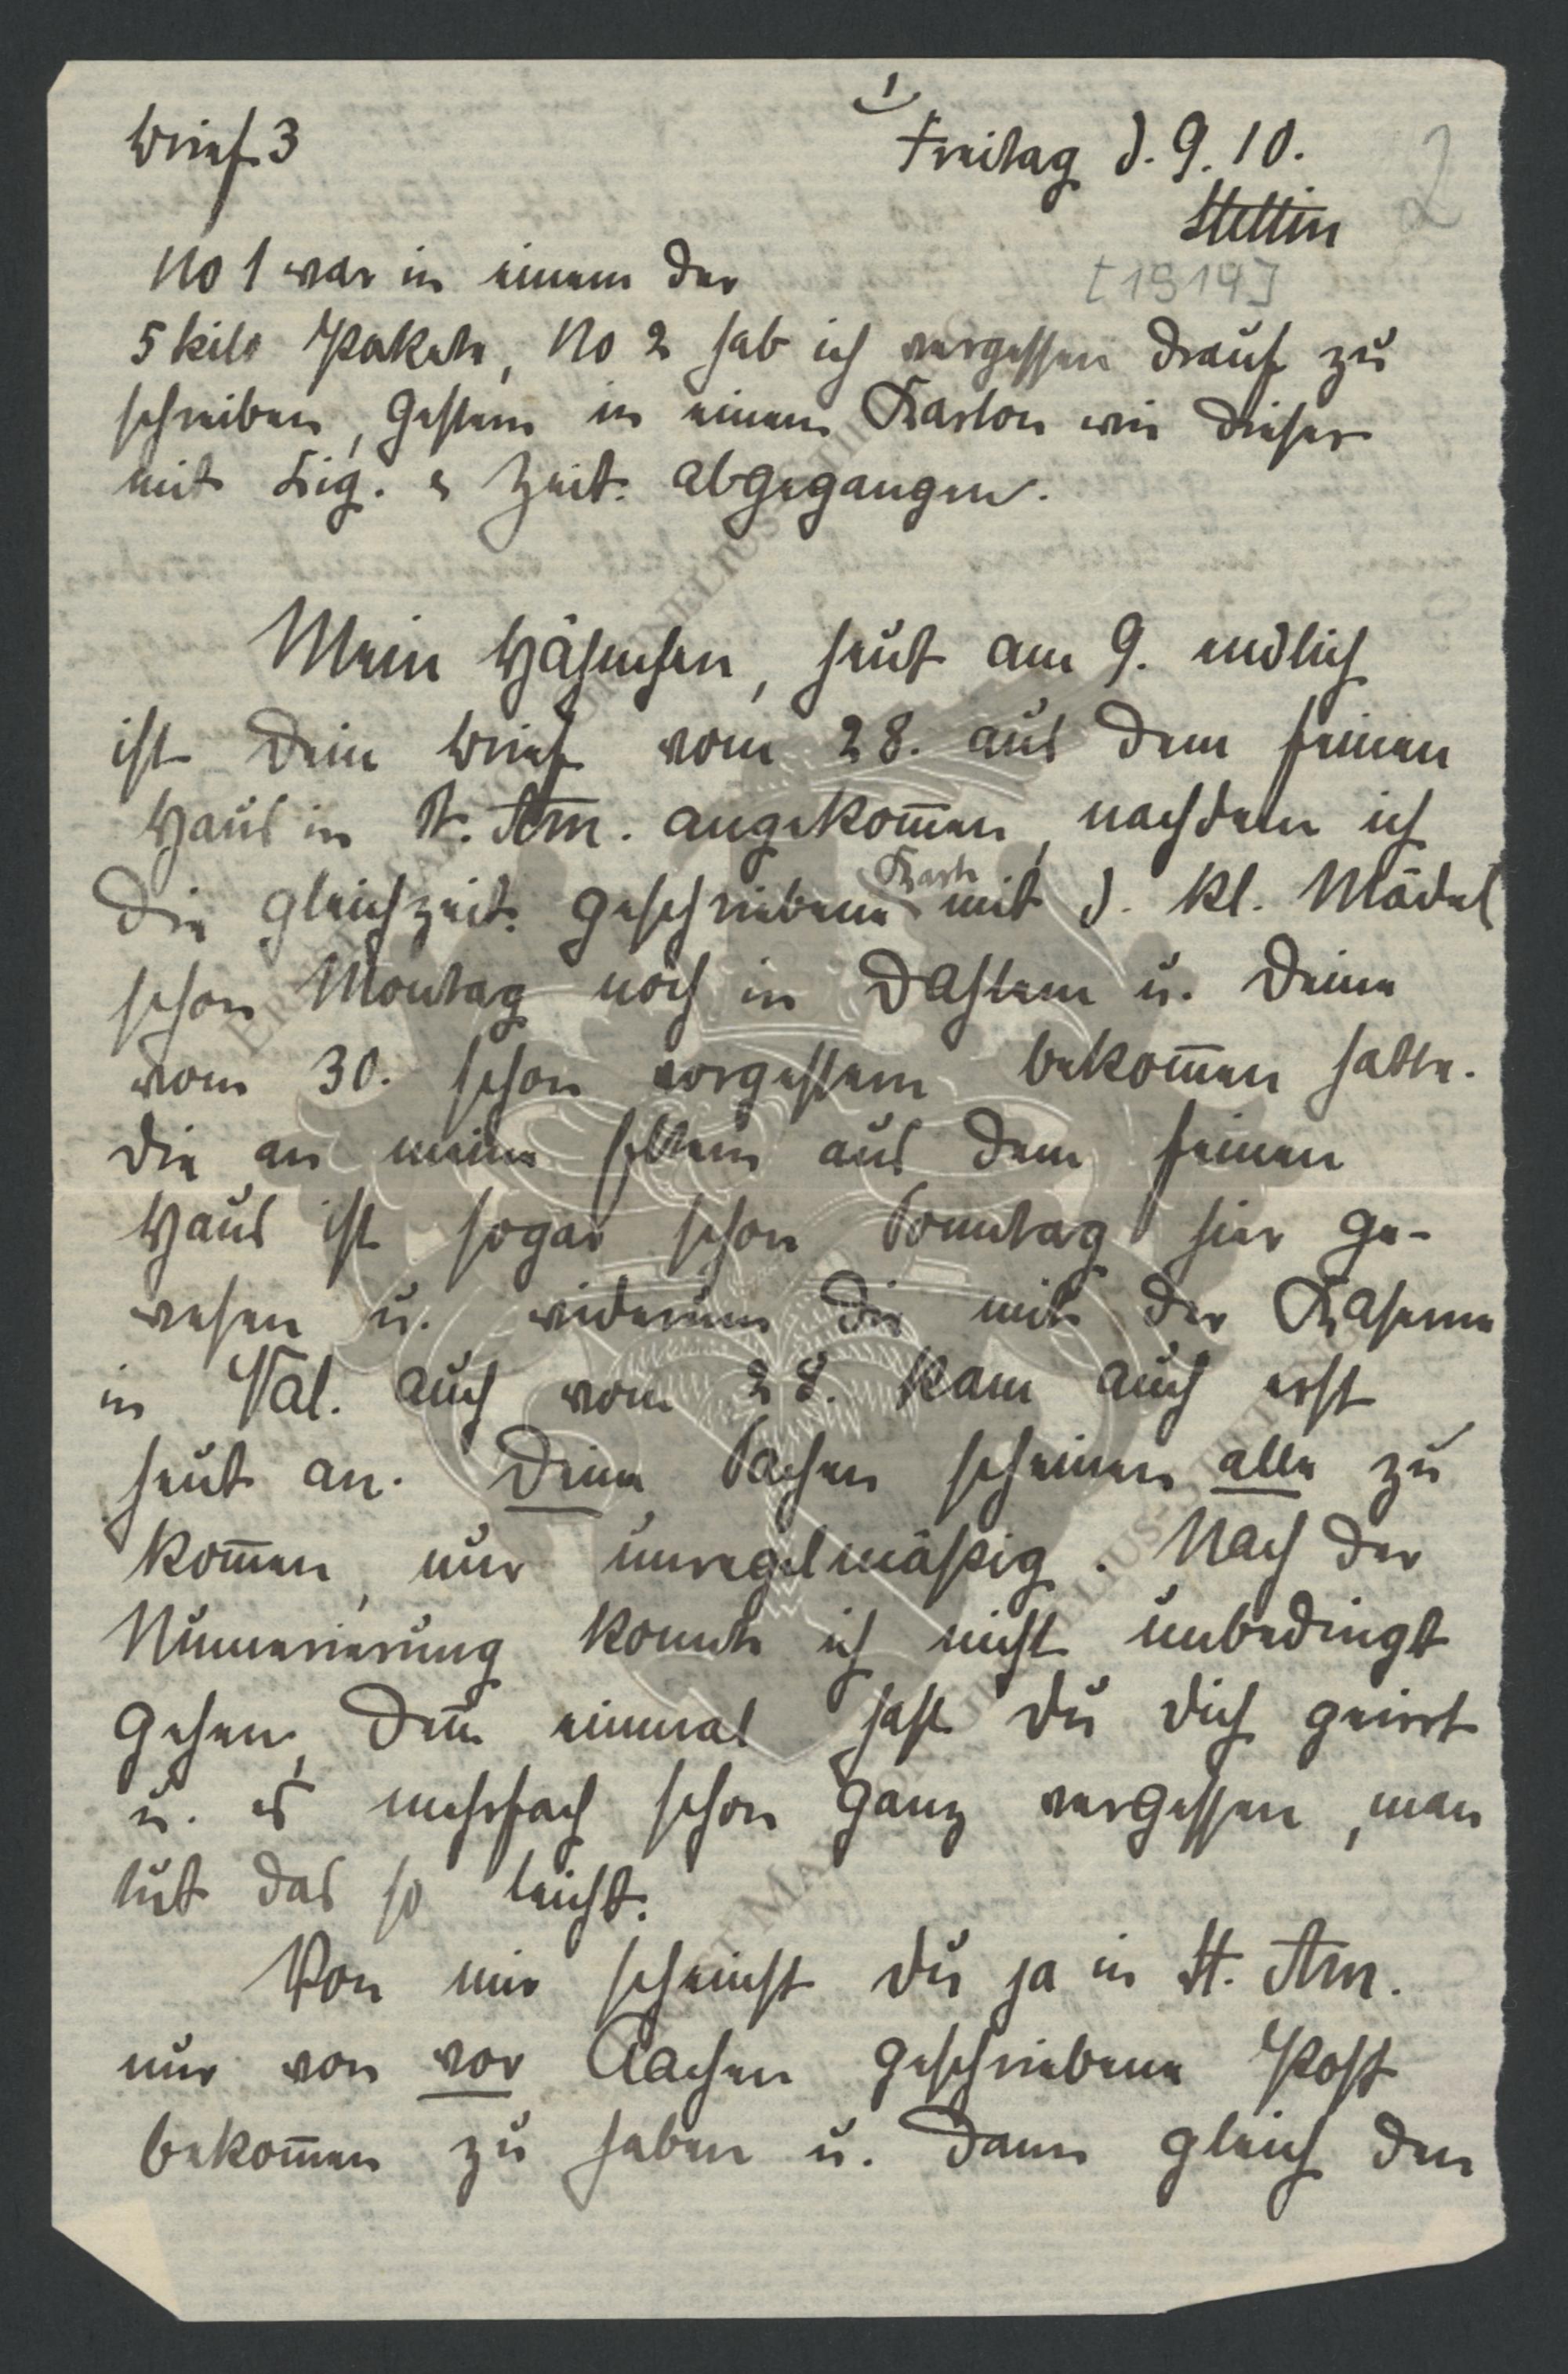 1
Brief 3
Freitag d. 9. 10.
2
Stettin
No 1 war in einem der
[1914]
5 kilo Pakete, No 2 hab ich vergessen drauf zu
schreiben, gestern in einem Karton wie dieser
mit Zig. & Zeit. abgegangen.
Mein Häschen, heut am 9. endlich
ist Dein Brief vom 28. aus dem feinen
Haus in St. Am. angekom̅en, nachdem ich
Karte
die gleichzeit. geschriebene mit d. kl. Mädel
schon Montag noch in Dahlem u. Deine
vom 30. schon vorgestern bekom̅en hatte.
Die an meine Eltern aus dem feinen
Haus ist sogar schon Sonntag hier ge-
wesen u. wiederum die mit der Kaserne
in Val. auch vom 28. kam auch erst
heut an. Deine Sachen scheinen alle zu
kom̅en, nur unregelmäßig. Nach der
Numerierung konnte ich nicht unbedingt
gehen, den̅ einmal hast Du Dich geirrt
u. es mehrfach schon ganz vergessen, man
tut das so leicht.
Von mir scheinst Du ja in St. Am.
nur von vor Aachen geschriebene Post
bekom̅en zu haben u. dann gleich den